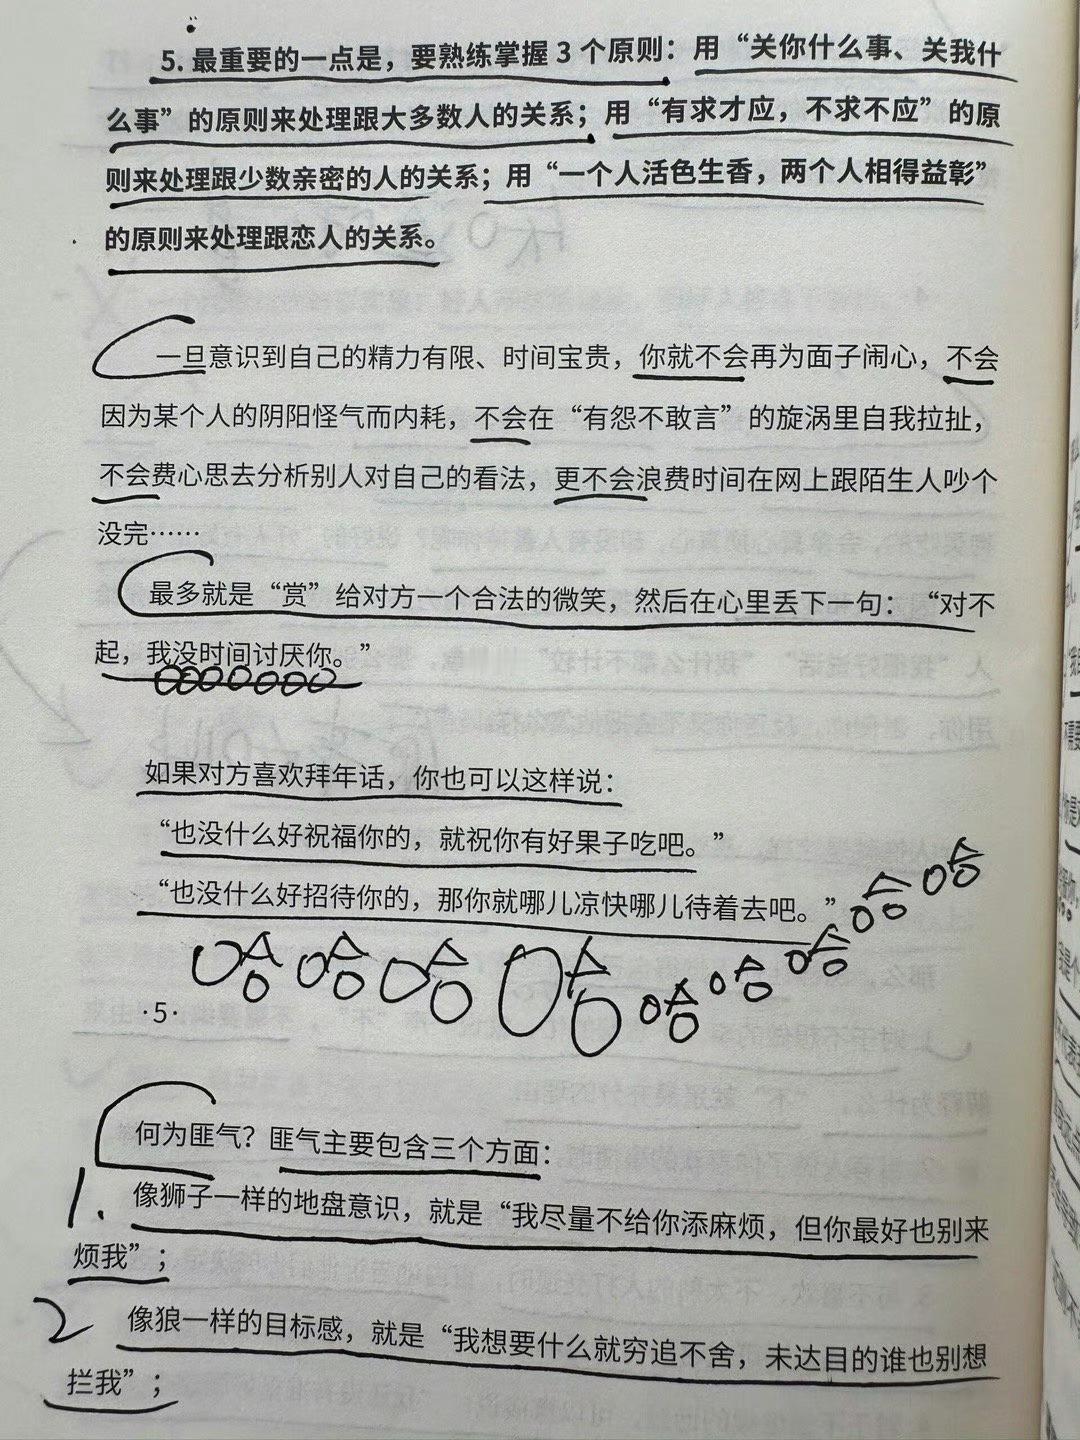 5. 最重要的一点是，要熟练掌握 3 个原则：用“关你什么事、关我什
么事”的原则来处理跟大多数人的关系；用“有求才应，不求不应”的原
则来处理跟少数亲密的人的关系；用“一个人活色生香，两个人相得益彰”
的原则来处理跟恋人的关系。
一旦意识到自己的精力有限、时间宝贵，你就不会再为面子闹心，不会
因为某个人的阴阳怪气而内耗，不会在“有怨不敢言”的旋涡里自我拉扯，
不会费心思去分析别人对自己的看法，更不会浪费时间在网上跟陌生人吵个
没完……
最多就是“赏”给对方一个合法的微笑，然后在心里丢下一句：“对不
起，我没时间讨厌你。”
如果对方喜欢拜年话，你也可以这样说：
“也没什么好祝福你的，就祝你有好果子吃吧。”
“也没什么好招待你的，那你就哪儿凉快哪儿待着去吧。”
哈哈哈哈哈哈哈哈哈
·5·
何为匪气？匪气主要包含三个方面：
1. 像狮子一样的地盘意识，就是“我尽量不给你添麻烦，但你最好也别来
烦我”；
2 像狼一样的目标感，就是“我想要什么就穷追不舍，未达目的谁也别想
拦我”；